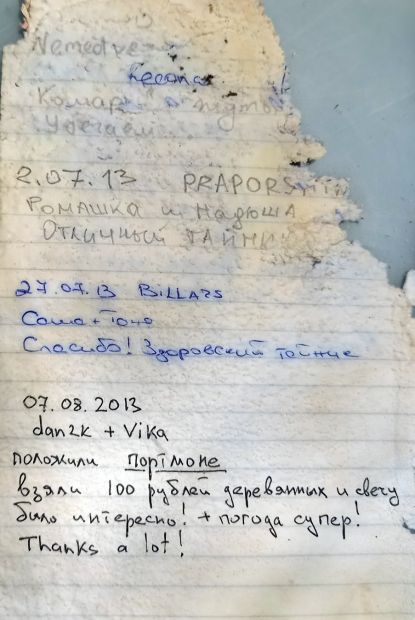 Nemedve
Комар
Убегаем
2.07.13 PRAPORSHIN
Ромашка и Надюша
Отличный тайник
27.07.13 BiLLARS
Саша + Тоня
Спасибо! Здоровский тайник
07.08.2013
dan2k + Vika
положили портмоне
взяли 100 рублей деревянных и свечу
было интересно! + погода супер!
Thanks a lot!